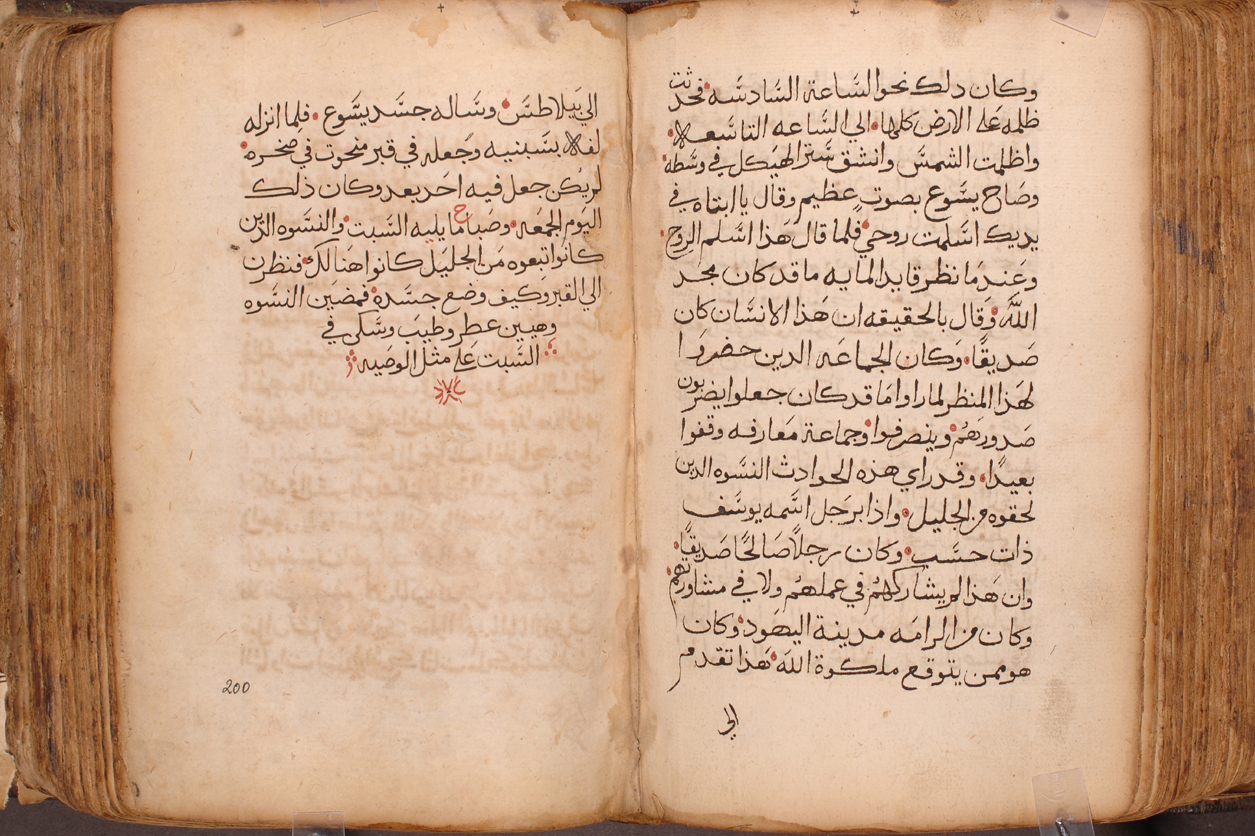 وكان دلك نحو الساعة السادسه فحدثت
ظلمه على الارض كلها الي الساعه التاسعه
واظلمت الشمس وانشق ستر الهيكل في وسطه
وصاح يسوع بصوت عظيم وقال يا ابتاه في
يديك اسلمت روحي فلما قال هذا اسلم الروح
وعندما نظر قايد المايه ما قد كان مجد
الله وقال بالحقيقه ان هذا الانسان كان
صديقا وكان الجماعه الدين حضروا
لهذا المنظر لما راوا ما قد كان جعلوا يضربون
صدورهم وينصرفوا وجماعة معارفه وقفوا
بعيدا وقد راي هذه الحوادث النسوه الدين
لحقوه من الجليل واذا برجل اسمه يوسف
ذات حسب وكان رجلا صالحا صديقا
وان هذا لم يشاركهم في عملهم ولا في مشاورتهم
وكان من الرامه مدينة اليهود وكان
هو ممن يتوقع ملكوة الله هذا تقدم
الي
الي بيلاطس وساله جسد يسوع فلما انزله
لفه بسبنيه وجعله في قبر منحوت في صخره
لم يكن جعل فيه احد بعد وكان ذلك
اليوم الجمعه وصباح ما يليه السبت والنسوه الدين
كانوا اتبعوه من الجليل كانوا هنالك فنظرن
الي القبر وكيف وضع جسده فمضين النسوه
وهيين عطر وطيب وسكن في
السبت على مثل الوصيه
200